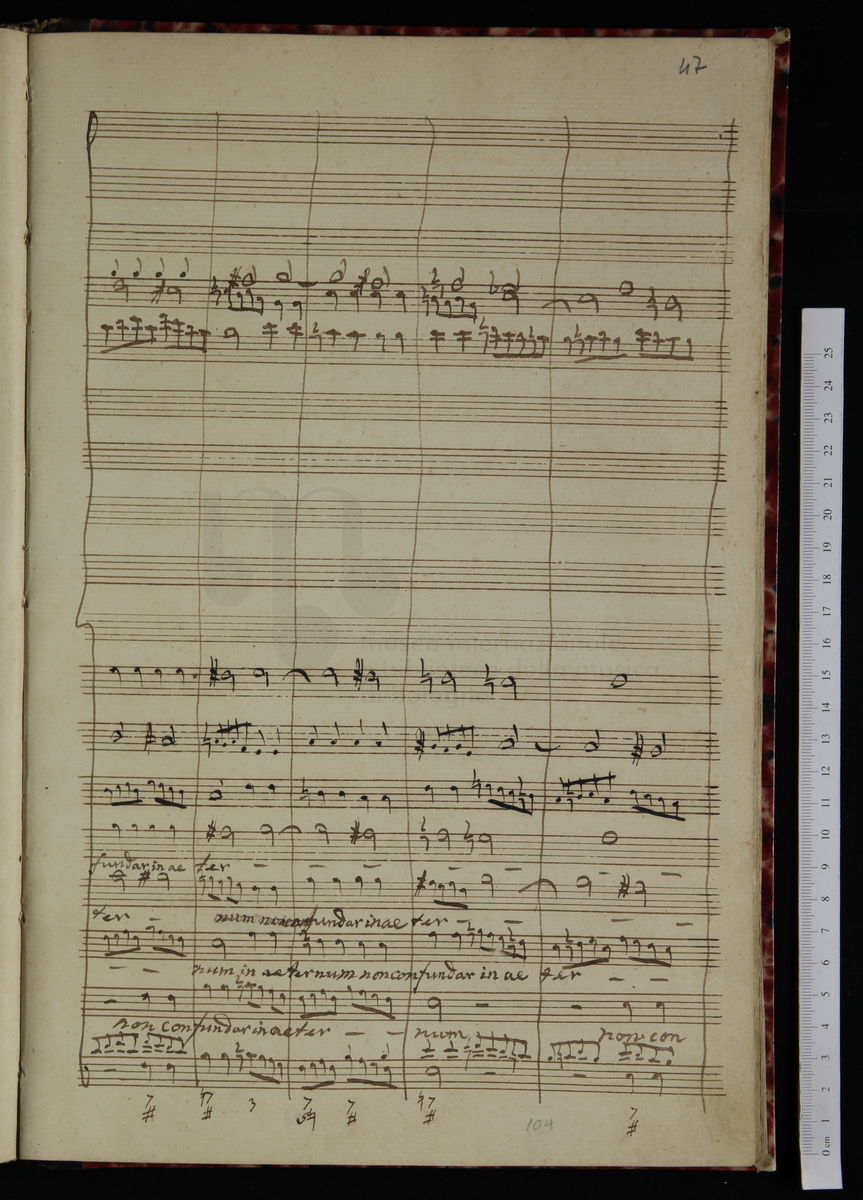 47
fundar in ae ter – – – –
ter – num non confundar in ae ter – – –
– – num, in ae ter num non confundar in ae ter – –
non confundar in ae ter – – num, non con
7
#
♮7
#
3
7
5♮
7
#
♮7
#
7
#
104
25
24
23
22
21
20
19
18
17
16
15
14
13
12
11
10
9
8
7
6
5
4
3
2
1
0 cm